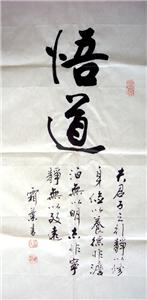 悟道
夫君子之行靜以修
身儉以養德非澹
泊無以明志非寧
靜無以致遠
霜葉